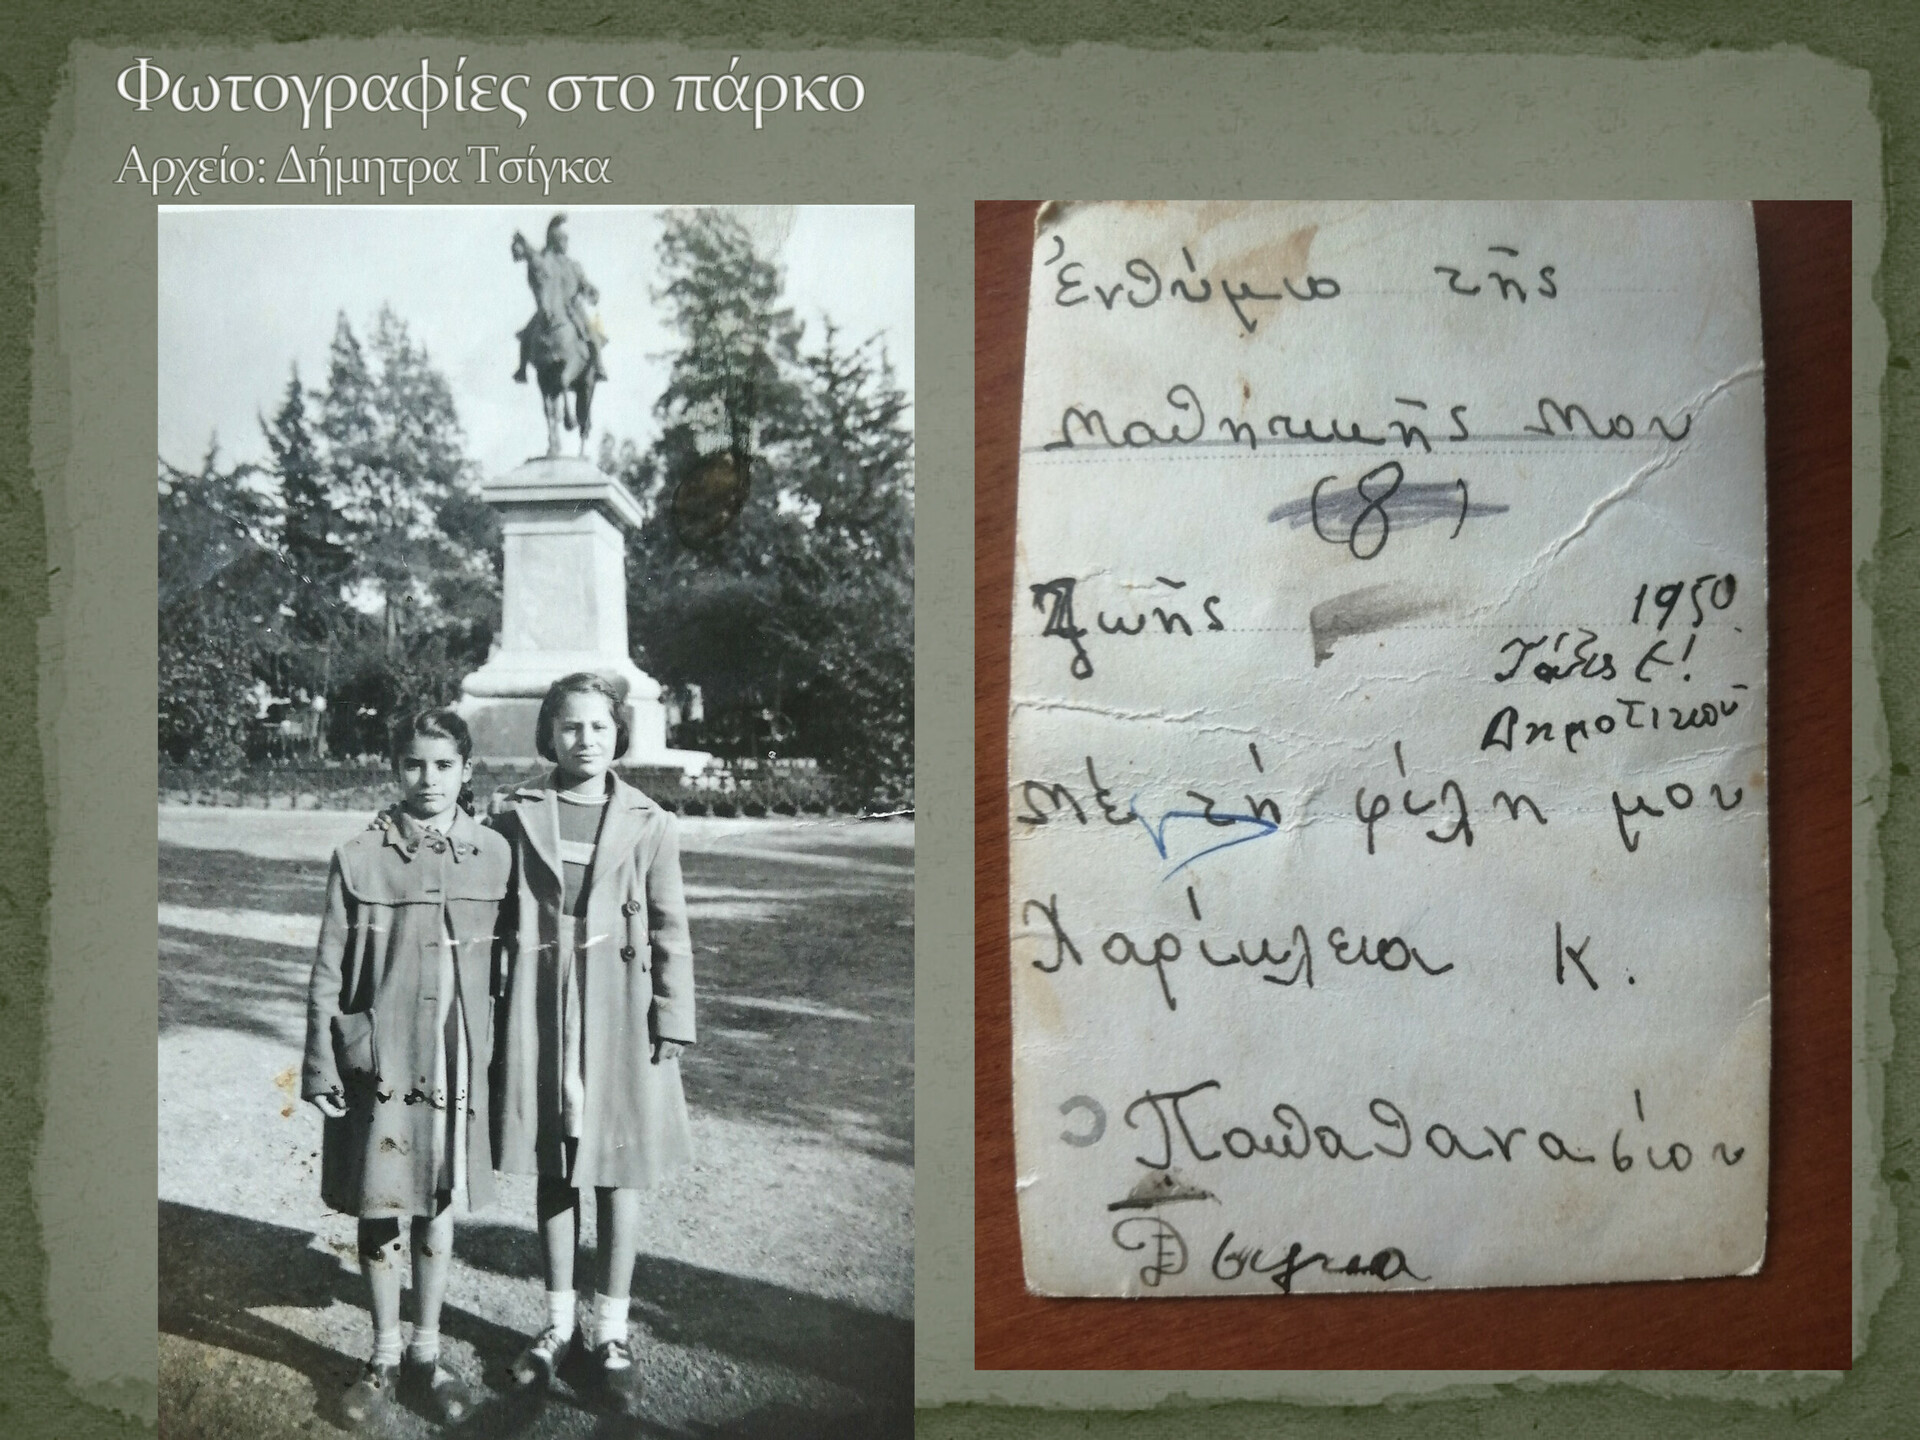 Φωτογραφίες στο πάρκο
Αρχείο: Δήμητρα Τσίγκα
Ἐνθύμιο τῆς
Μαθητικῆς Μου
(8)
Ζωῆς
1950
Τάξις
Δημοτικοῦ
Μέ τή φίλη μου
Χαρίκλεια Κ.
Παπαθανασίου